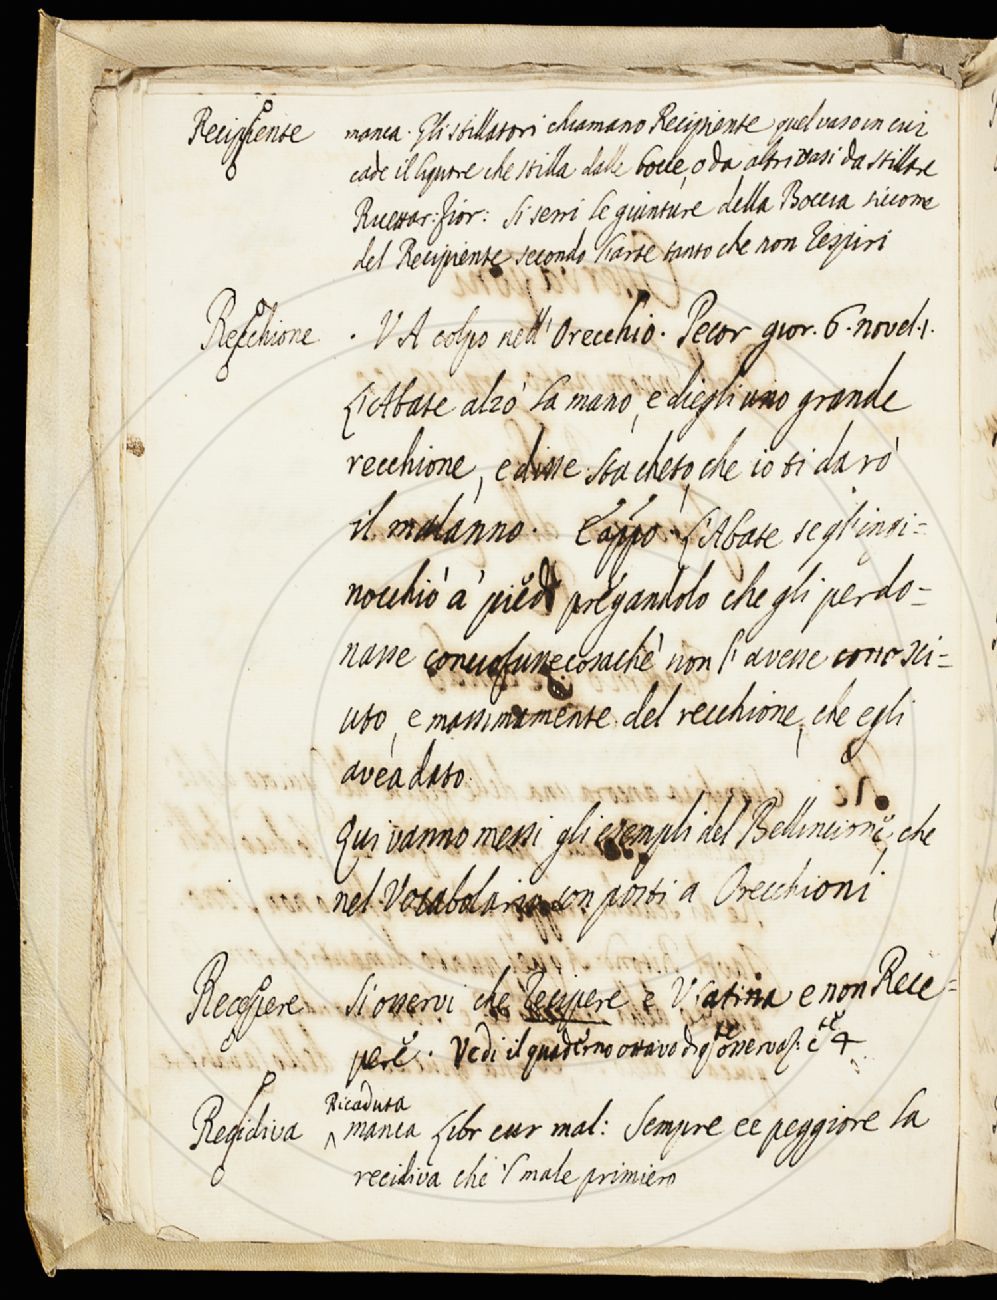 Recipiente manca. Gli stillatori chiamano Recipiente quel vaso in cui
cade il liquore che stilla dalle bocce, o da altri vasi da stillare
Ricettar: Fior: Si serri le giunture della Boccia siccome
del Recipiente secondo l'arte tanto che non respiri
Recchione . V A colpo nell' Orecchio. Pecor gior. 6. novel. 1.
L'Abate alzò la mano, e diegli uno grande
recchione, e disse sta cheto, che io ti darò
il malanno. E appo L'Abate se gl'ingi=
nocchiò à piedi pregandolo che gli perdo=
nasse conciofussecosachè non l'avesse conosci=
uto, e massimamente del recchione, che egli
avea dato
Qui vanno messi gli esempli del Bellincioni, che
nel Vocabolario son posti a Orecchioni
Recepere Si osservi che Recipere è V latina e non Rece=
pere. Vedi il quaderno ottavo di q.te osservaz. c.te 4
Recidiva Ricaduta
manca Libr cur mal: Sempre ee peggiore la
recidiva che 'l male primiero